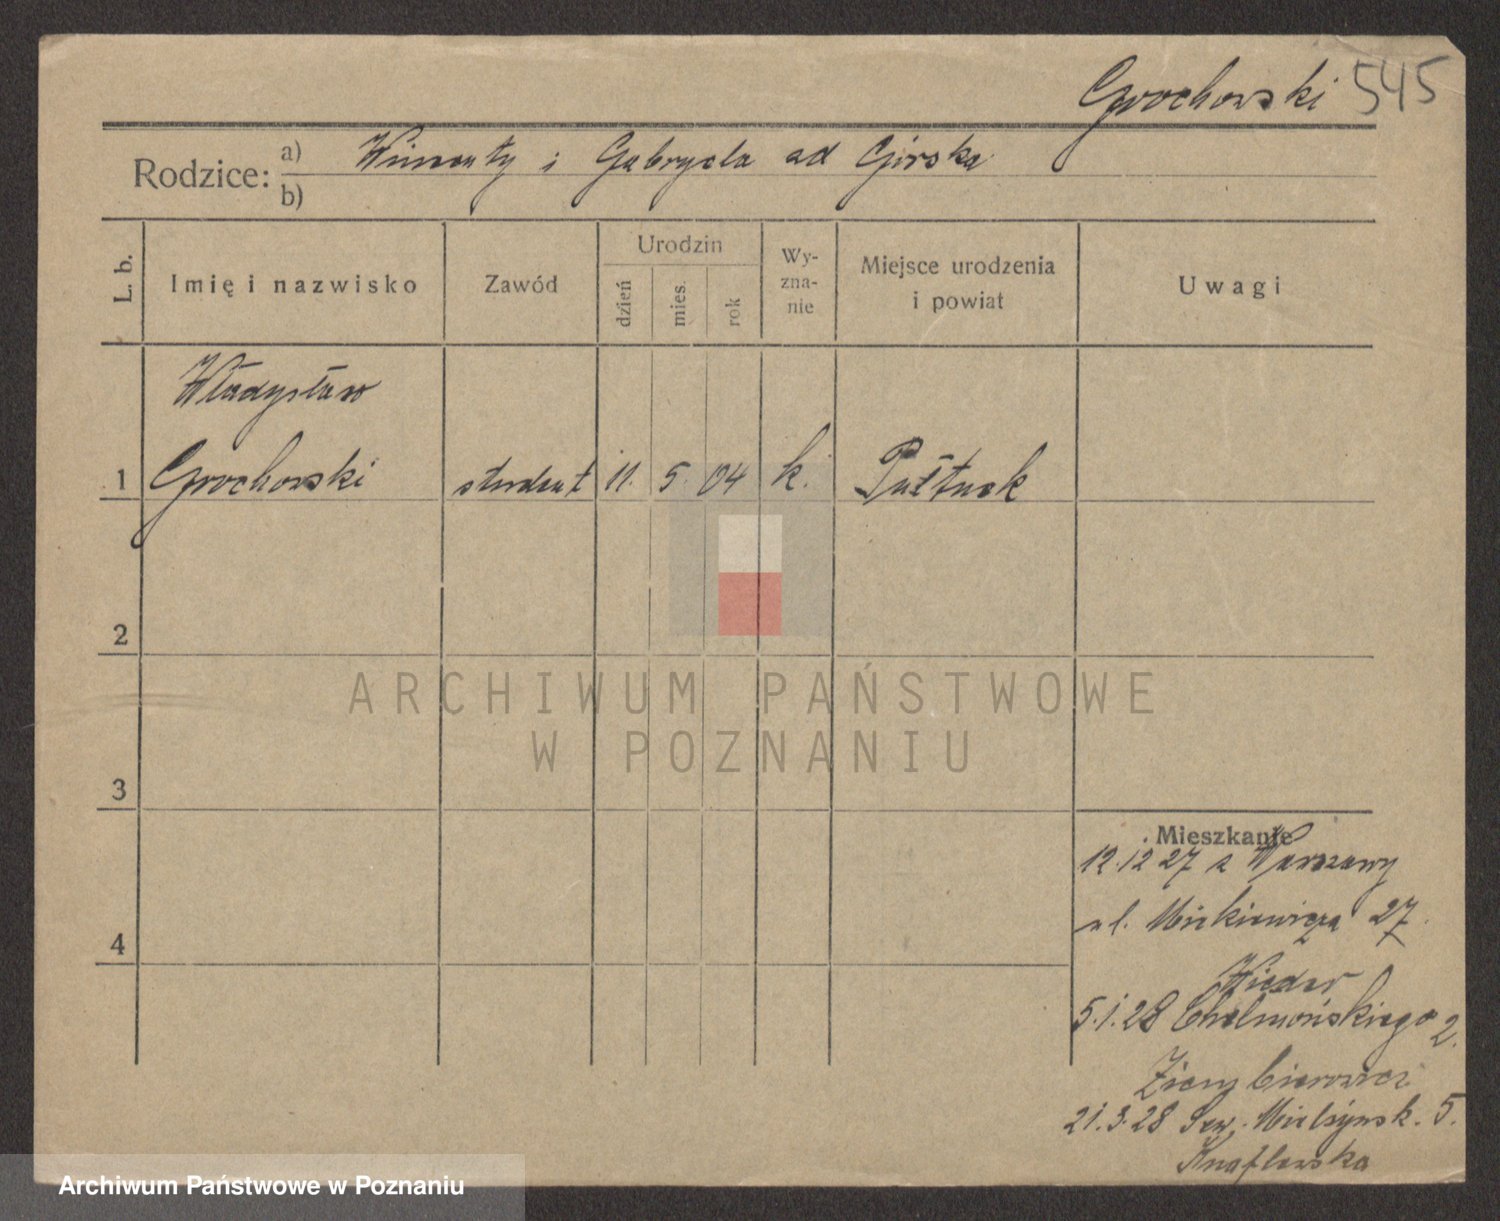 Grochowski 545
Rodzice: a) Wincenty i Gabryela ad Górska
b)
L. b.
Imię i nazwisko
Zawód
Urodzin
dzień
mies.
rok
Wy-
zna-
nie
Miejsce urodzenia
i powiat
Uwagi
Władysław
1 Grochowski student 11. 5. 04 k. Pułtusk
2
3
4
Mieszkanie
12.12 27 z Warszawy
ul. Mickiewicza 27.
5.1.28 Chełmońskiego 2.
21.3.28 Sew. Mielżyńsk. 5.
Knaflewska
ARCHIWUM PAŃSTWOWE
W POZNANIU
Archiwum Państwowe w Poznaniu